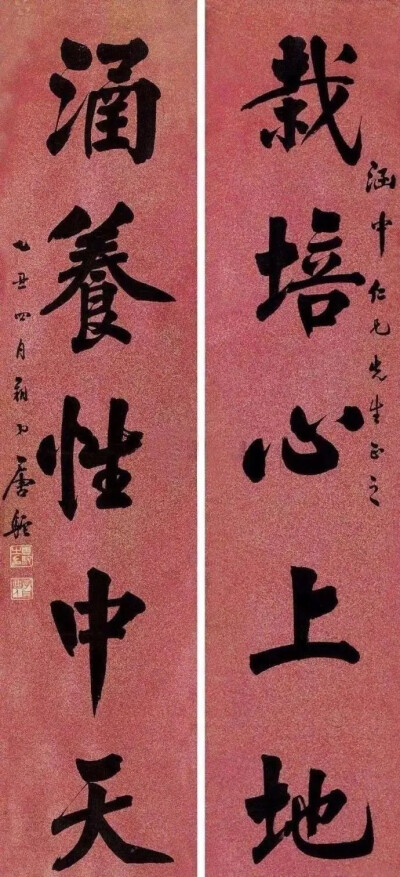 涵中仁兄先生正之
栽培心上地
涵養性中天
乙丑四月朔日唐駝